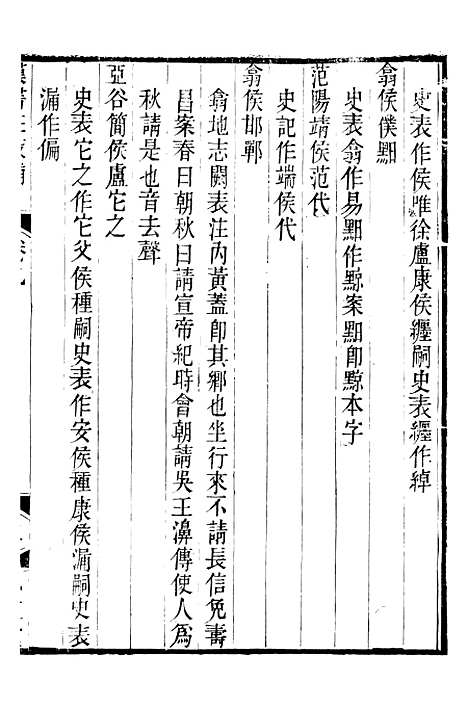 史表作侯唯徐盧康侯纏嗣史表纏作綽
翕侯僕䵣
史表翕作易䵣作黥案䵣卽黥本字
范陽靖侯范代
史記作端侯代
翕侯邯鄲
翕地志闕表注內黃蓋卽其鄉也坐行來不請長信免壽
昌案春曰朝秋曰請宣帝紀時會朝請吳王濞傳使人爲
秋請是也音去聲
亞谷簡侯盧它之
史表它之作它父侯種嗣史表作安侯種康侯漏嗣史表
漏作偏